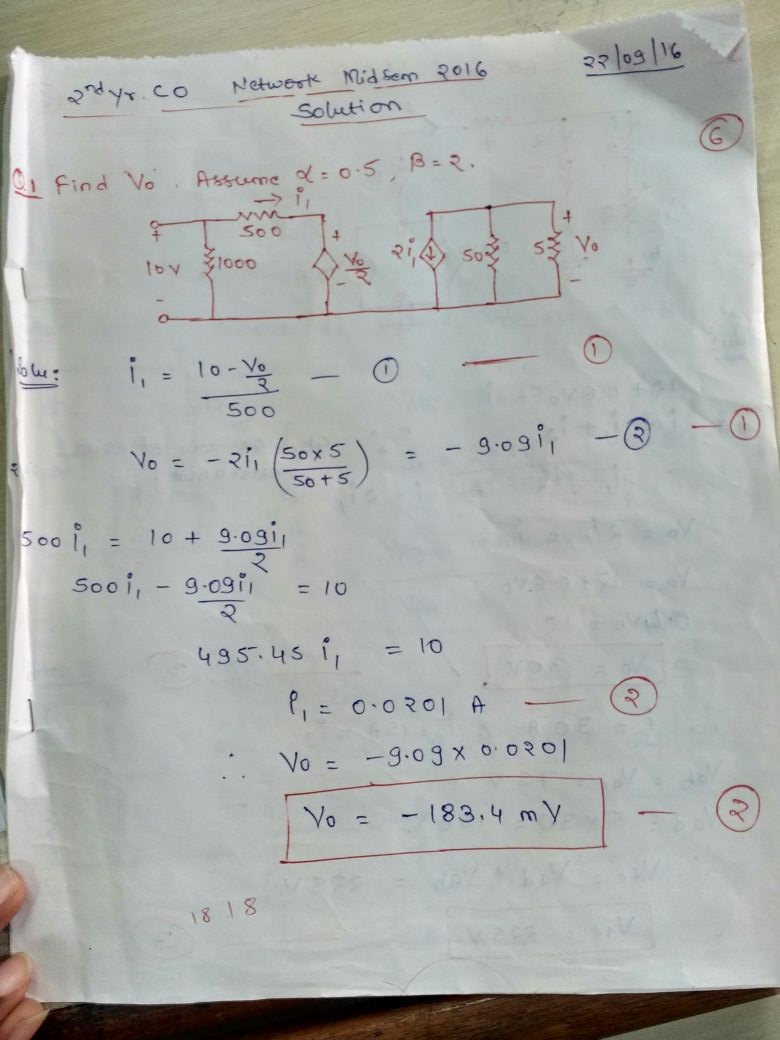 2nd Yr. CO Network Mid Sem 2016 22/09/16
Solution
6
Q1 Find Vo. Assume α = 0.5, β = 2.
→ i₁
+ 500 + +
10 V 1000 Vo/2 2i₁ 50 5 Vo
- - -
Solu: i₁ = (10 - Vo/2)/500 — ① — ①
Vo = -2i₁ (50x5/50+5) = - 9.09i₁ — ② — ①
500 i₁ = 10 + 9.09i₁/2
500i₁ - 9.09i₁/2 = 10
495.45 i₁ = 10
i₁ = 0.0201 A — ②
∴ Vo = -9.09 x 0.0201
Vo = - 183.4 mV — ②
18 18